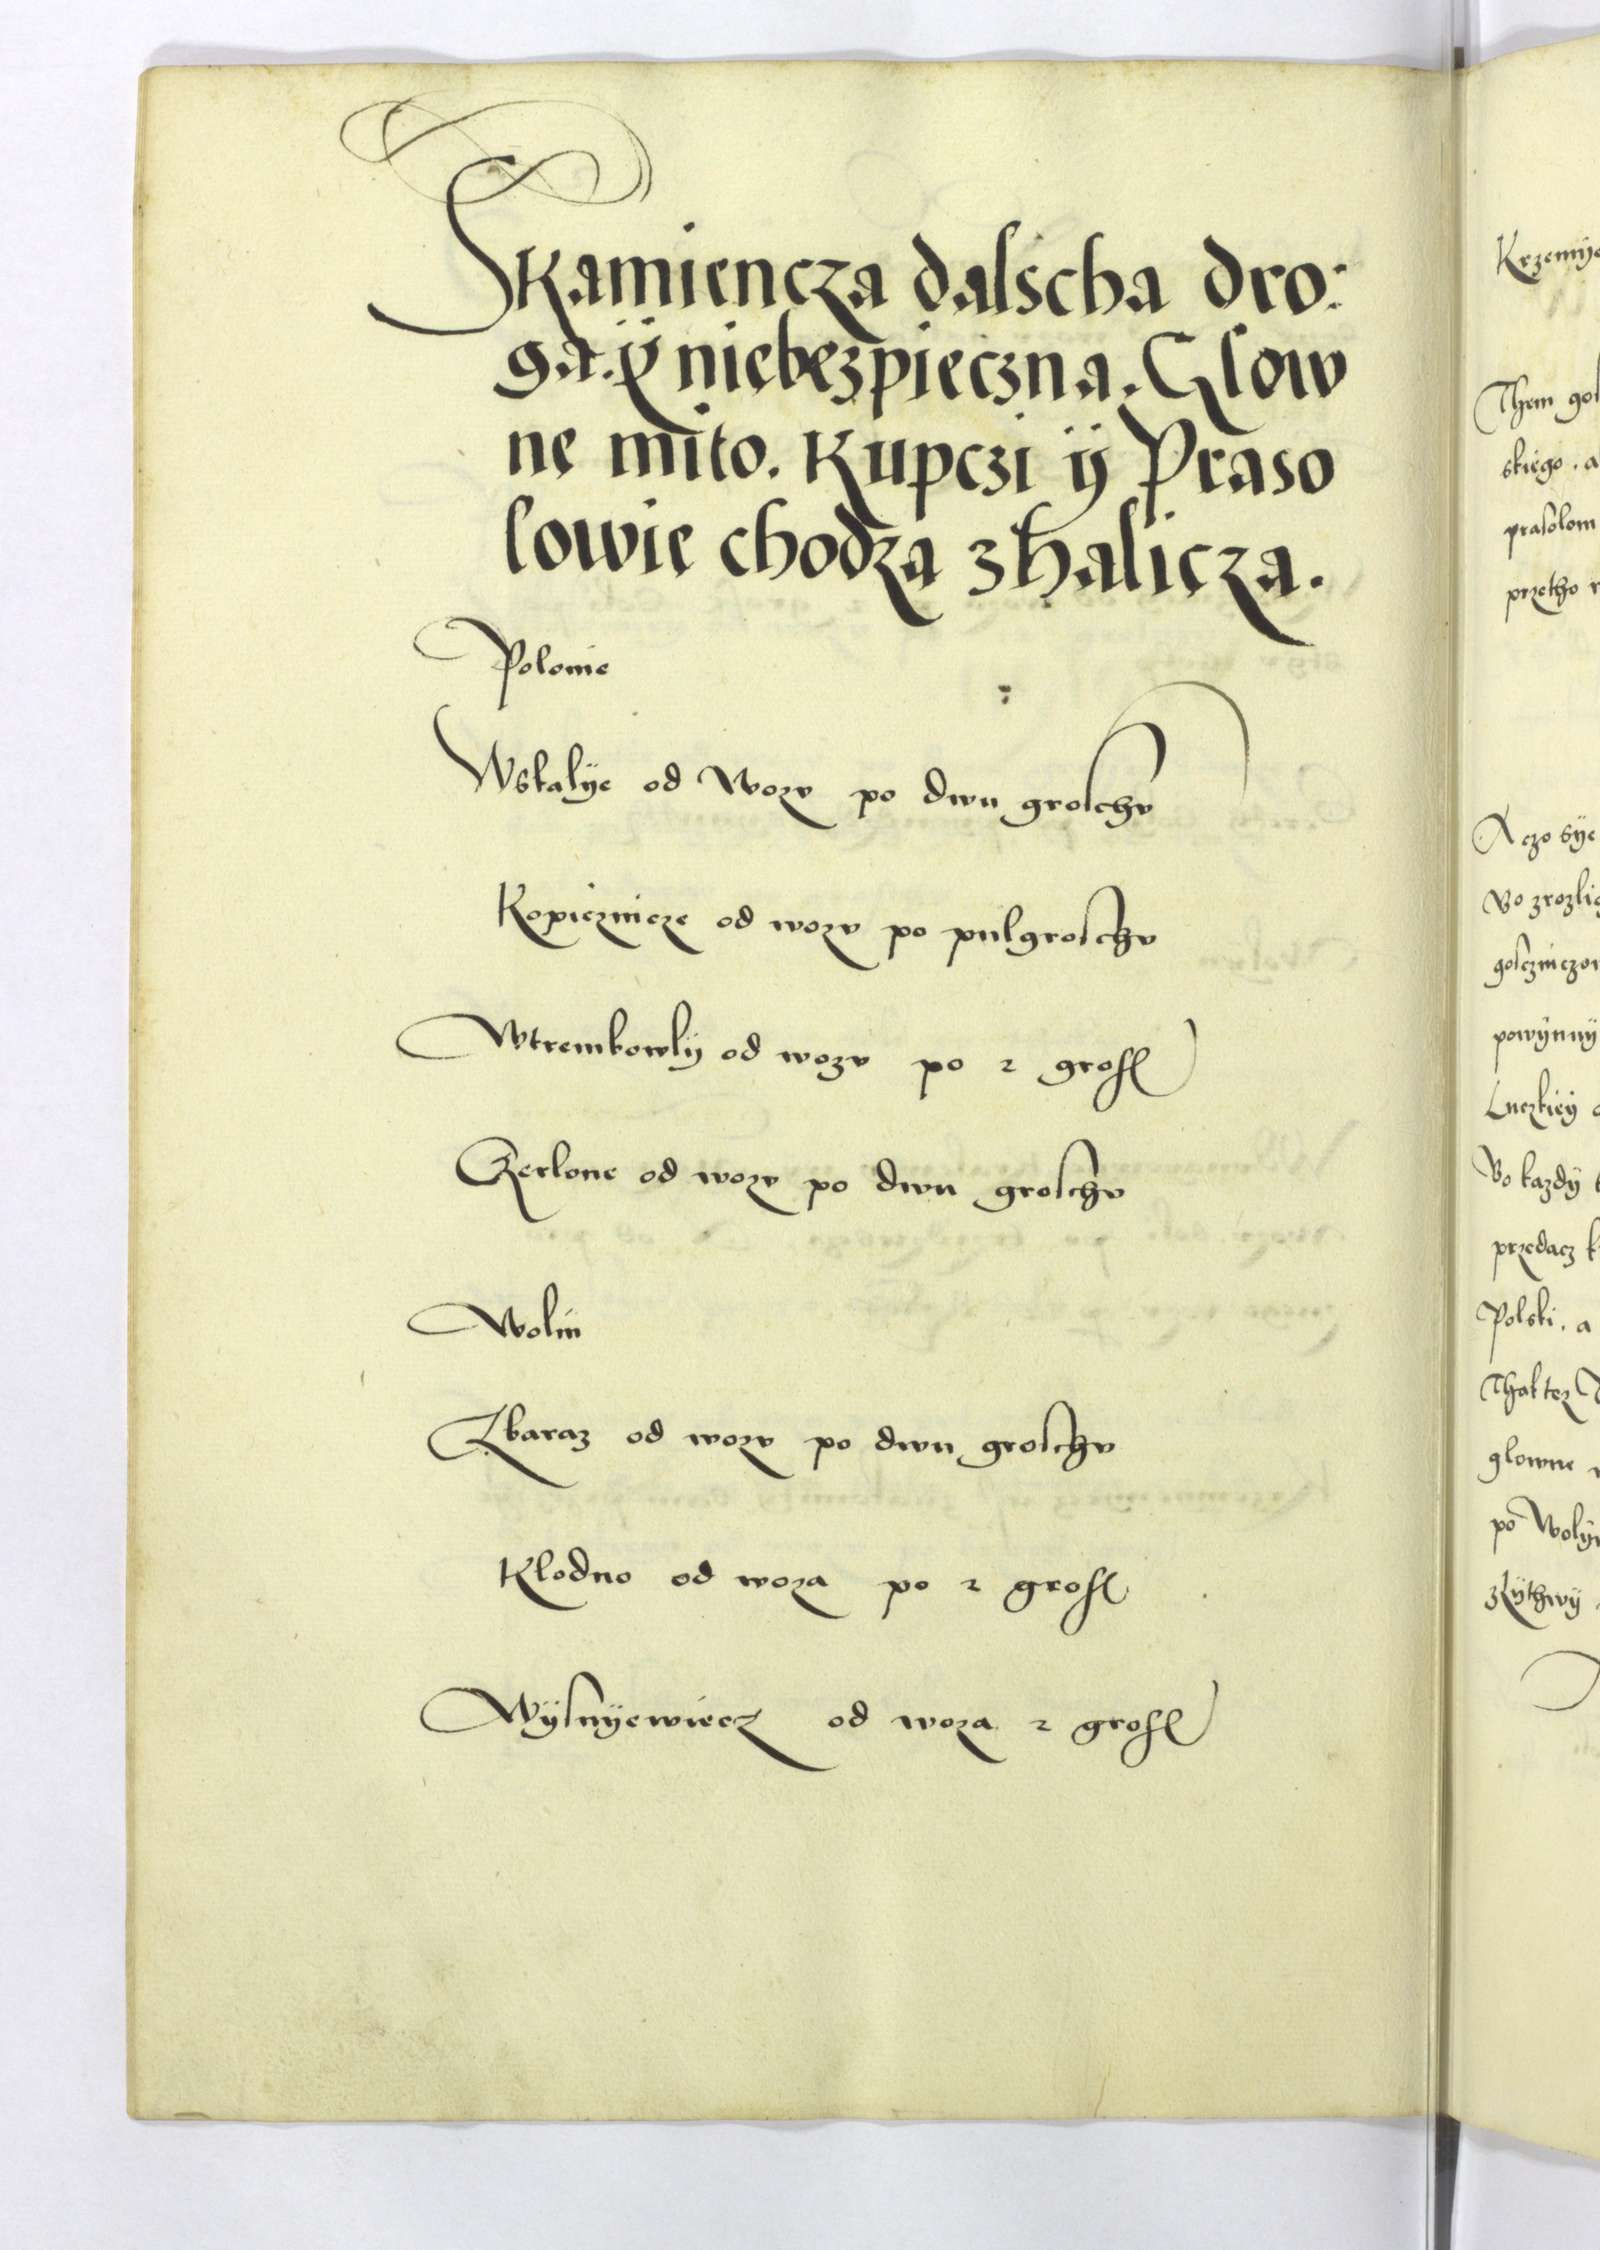 Skamiencza dalscha dro:
ga. ÿ niebezpieczna. Glow
ne mito. Kupczi ÿ Praso
lowie chodza z halicza.
Polonie
Wskalÿe od Wozv po dwu groschv
Kopiecznicze od wozv po pulgroschv
Wtrembowlÿ od wozv po 2 gross
Czerlone od wozv po dwu groschv
Wolin
Zbaraz od wozv po dwu groschv
Klodno od woza po 2 gross
Wÿsnÿewiecz od woza 2 gross
Them
skiego. a
prasolom
przetho
A czo sÿe
Bo
powÿnnÿ
Luczkieÿ
Bo kazdÿ
przedacz
Polski. a
Thak tez
glowne
po
zLÿthwÿ